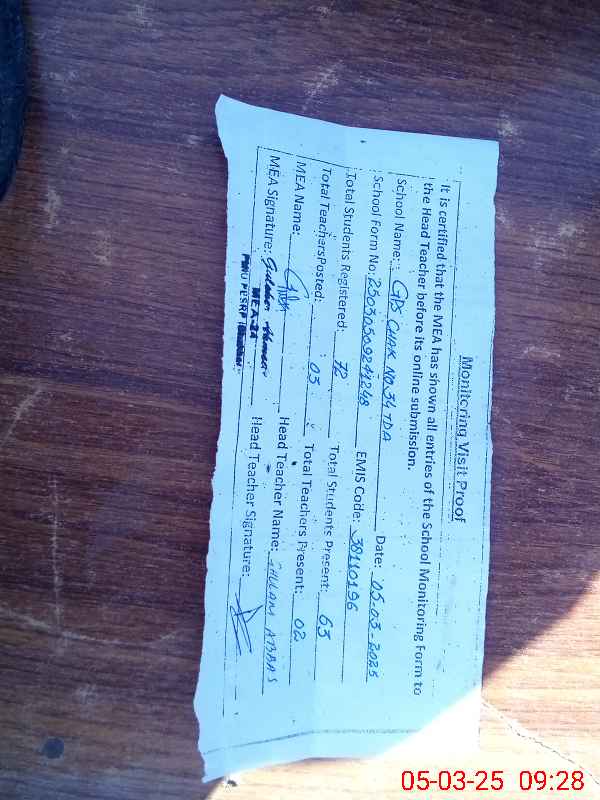 Monitoring Visit Proof
It is certified that the MEA has shown all entries of the School Monitoring Form to
the Head Teacher before its online submission.
School Name: GPS CHAK NO.34 TDA Date: 05-03-2025
School Form No: 250305092411248 EMIS Code: 38110196
Total Students Registered: 72 Total Students Present: 63
Total TeachersPosted: 03 Total Teachers Present: 02
MEA Name: Head Teacher Name: GHULAM ABBAS
MEA Signature: Head Teacher Signature:
MEA-24
05-03-25 09:28